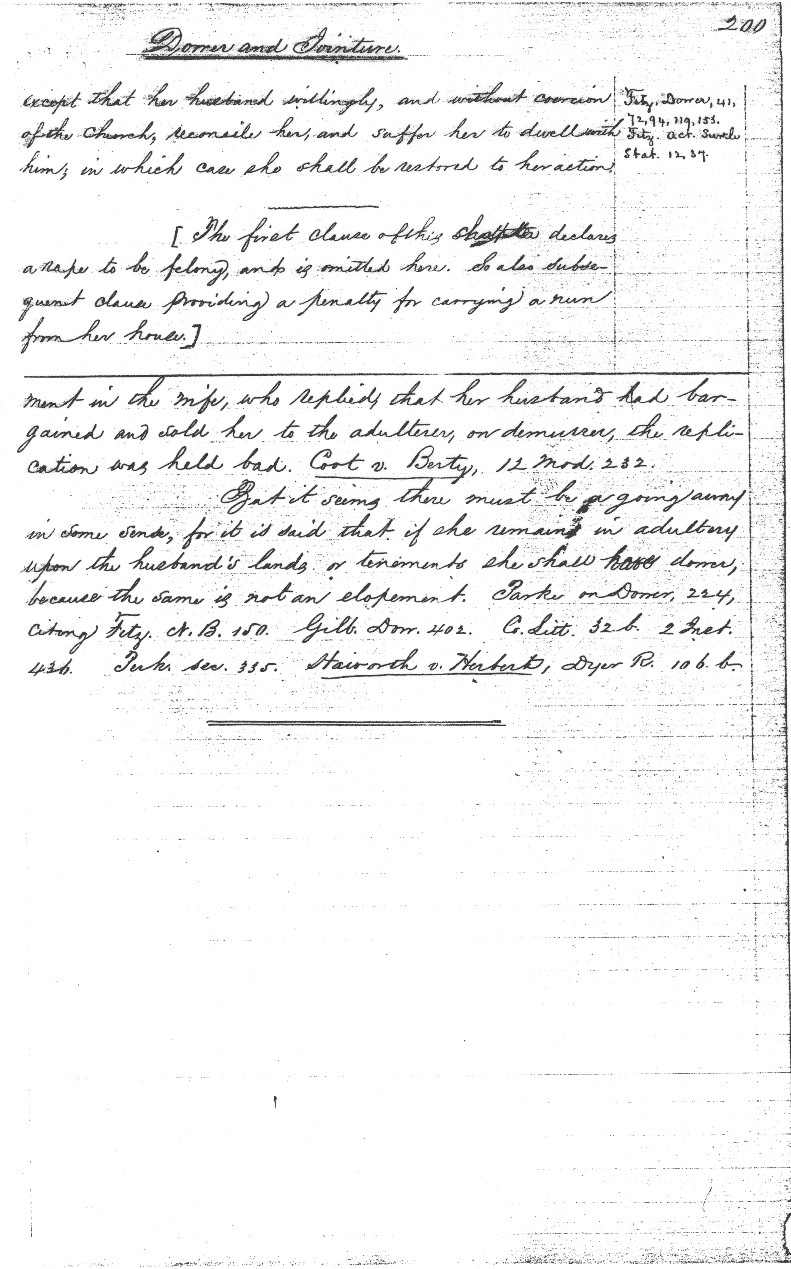 200
Dower and Jointure.
except that her husband willingly, and without coercion
of the Church, reconcile her, and suffer her to dwell with
him; in which case she shall be restored to her action.
Fitz. Dower, 41,
72, 94, 119, 153.
Fitz. Act. Sur le
Stat. 12, 37.
[The first clause of this chapter declares
a rape to be felony, and is omitted here. So also subse-
quent clause providing a penalty for carrying a nun
from her house.]
ment in the wife, who replied, that her husband had bar-
gained and sold her to the adulterer, on demurrer, the repli-
cation was held bad. Coot v. Berty, 12 Mod. 232.
But it seems there must be a going away
in some sense, for it is said that if she remains in adultery
upon the husband's lands or tenements she shall have dower,
because the same is not an elopement. Parke on Dower, 224,
citing Fitz. N. B. 150. Gilb. Dow. 402. Co. Litt. 32 b. 2 Inst.
436. Perk. sec. 335. Haworth v. Herbert, Dyer R. 106. b.